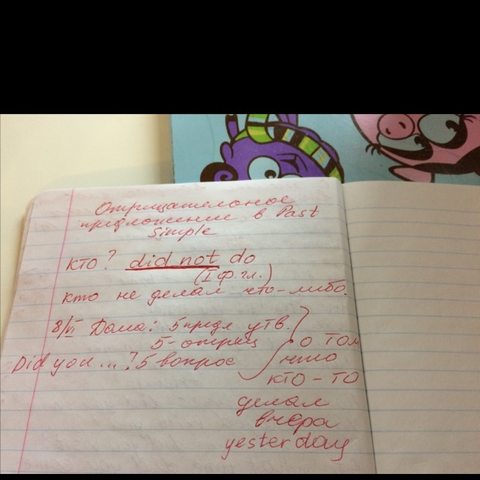 Отрицательное
предложение в Past
Simple
кто? did not do
(I ф. гл.)
кто не делал что-либо.
8/VI Дома: 5 предл утв.
5 - отриц о том
Did you...? 5 вопрос что
кто - то
делал
вчера
yesterday